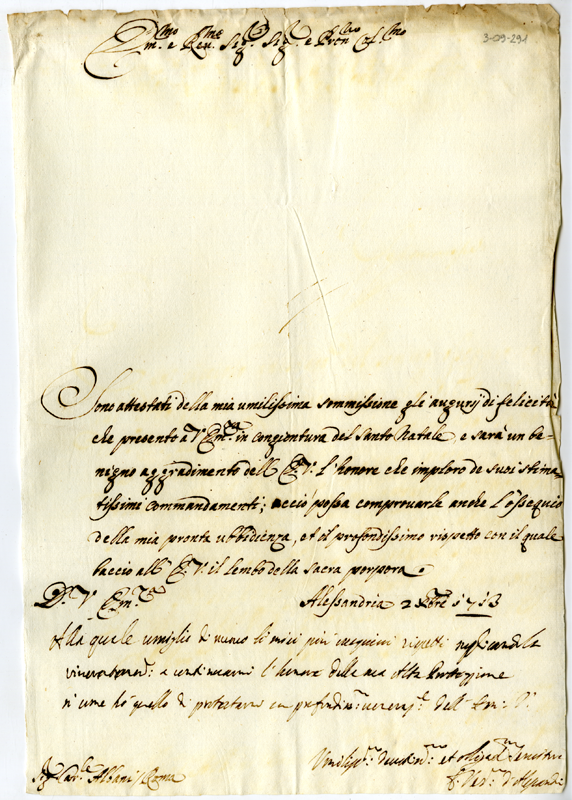 Em.mo e Rev.mo Sig.r Sig.r e Pron Col.mo
3-09-291
Sono attestati della mia umilissima sommissione gl'augurij di felicità
che presento à V. Em.za in congiontura del Santo Natale, e sarà un be-
nigno aggradimento dell'E. V. l'honore che imploro de suoi stima-
tissimi commandamenti; acciò possa comprovarle anche l'ossequio
della mia pronta ubbidienza, et il profondissimo rispetto con il quale
baccio all'E. V. il lembo della sacra porpora.
D. V. Em.za
Alessandria 2 Xbre 1713
Alla quale umiglio di nuovo li miei più ossequiosi rispetti
a continuarmi l'honore della sua Alta Protezzione
si come hò quello di protestarmi con dell'Em: V.
Umiliss.mo devot.mo et obligat.mo
Sig. Car.le Albani / Roma